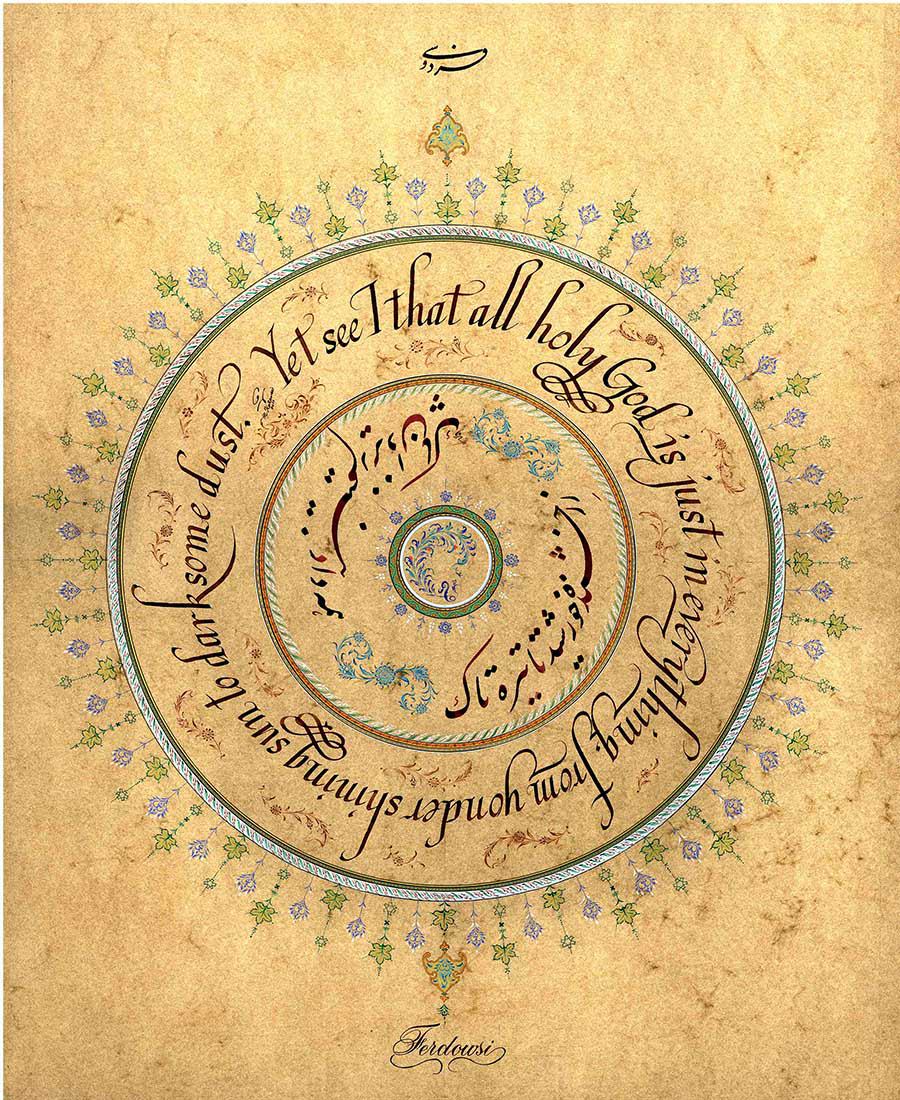 فردوسی
Yet see I that all holy God is just in everything: from yonder shining sun to darksome dust.
ز رخشنده خورشید تا تیره خاک
Ferdowsi